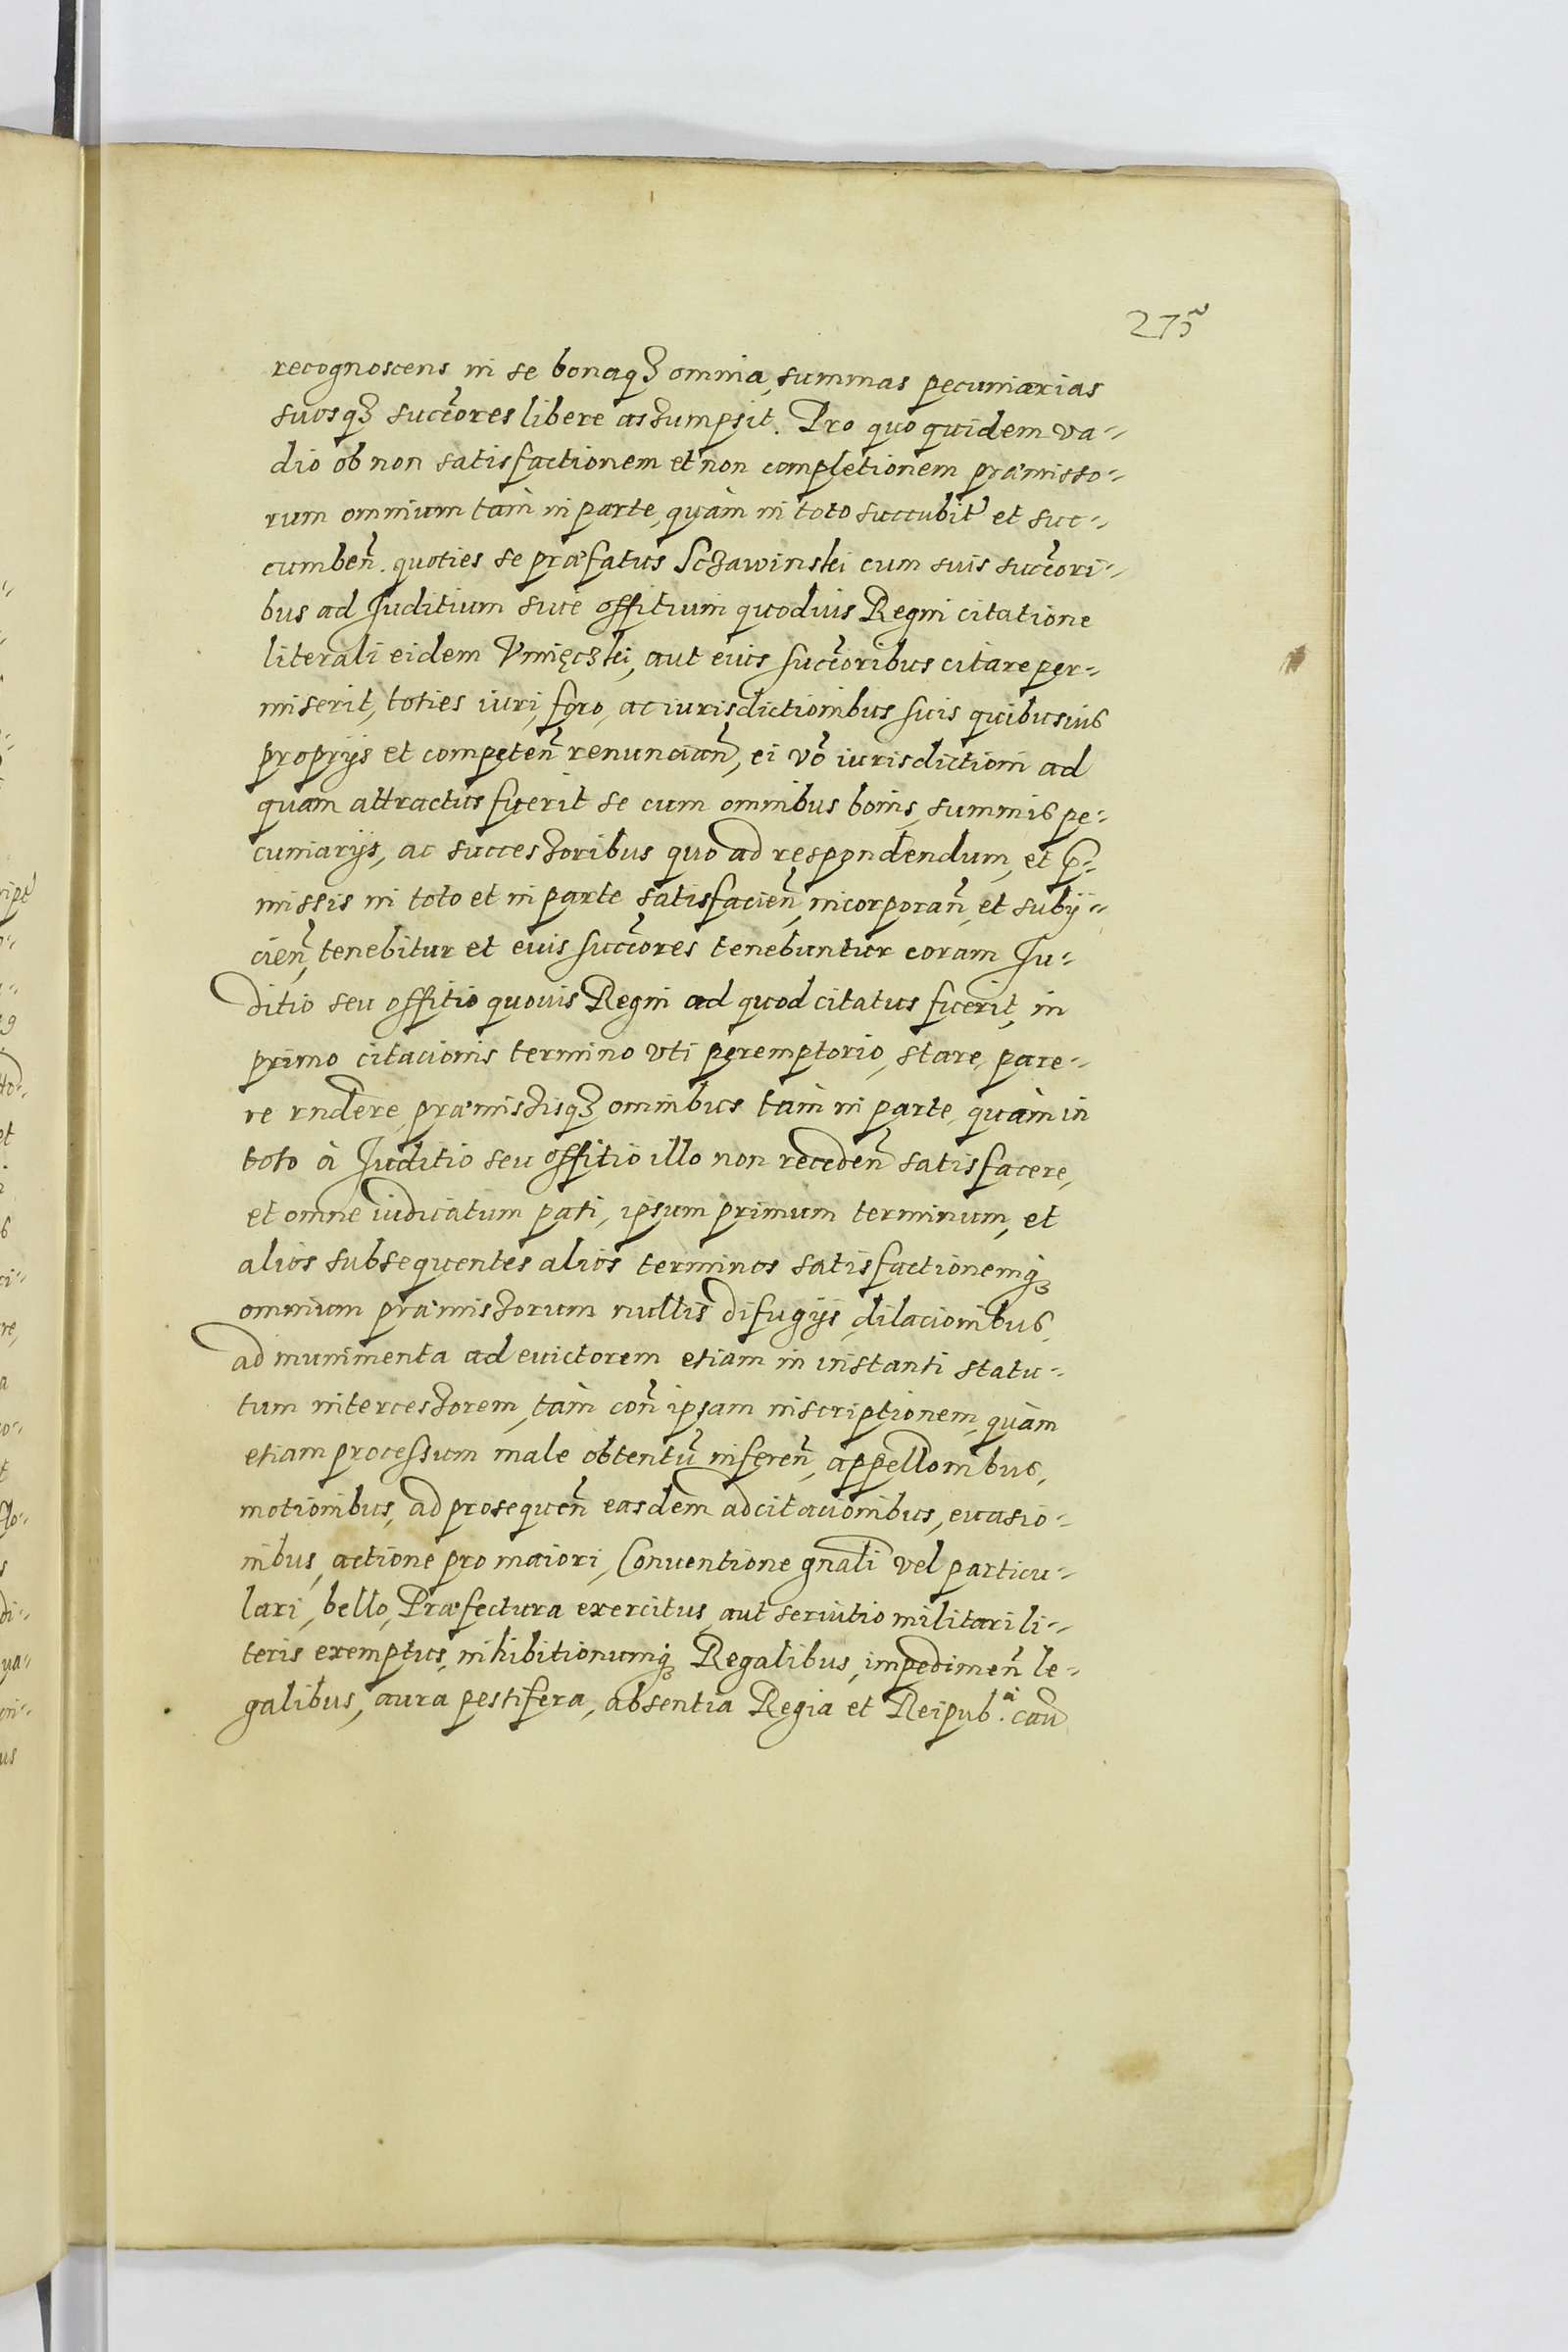 275
recognoscens in se bonaqꝫ omnia, summas pecuniarias
suosqꝫ succ̃ores libere assumpsit. Pro quo quidem va-
dio ob non satisfactionem et non completionem præmisso-
rum omnium tàm in parte, quàm in toto succubit̃ et suc-
cumbeñ. quoties se præfatus Sczawinski cum suis succ̃ori-
bus ad Juditium siue offitium quoduis Regni citatione
literali eidem Vmięczki, aut eius succ̃oribus citare per-
miserit, toties iuri, foro, ac iurisdictionibus suis quibusuis
proprijs et competeñ renunciañ, ei võ iurisdictioni ad
quam attractus fuerit se cum omnibus bonis, summis pe-
cuniarijs, ac successoribus quo ad respondendum, et p̃-
missis in toto et in parte satisfacieñ, incorporañ, et subij-
cieñ, tenebitur et euis succ̃ores tenebuntur coram Ju-
ditio seu offitio quouis Regni ad quod citatus fuerit, in
primo citacionis termino vti peremptorio, stare, pare-
re rndere, præmissisqꝫ omnibus tàm in parte, quàm in
toto à Juditio seu offitio illo non recedeñ satisfacere,
et omne iudicatum pati, ipsum primum terminum, et
alios subsequentes alios terminos satisfactionemqꝫ
omnium præmissorum nullis difugijs, dilacionibus,
ad munimenta ad euictorem etiam in instanti statu-
tum intercessorem, tàm coñ ipsam inscriptionem, quàm
etiam processum male obtentũ infereñ, appellonibus,
motionibus, ad prosequeñ easdem adcitacionibus, euasio-
nibus, actione pro maiori, Conuentione gnali vel particu-
lari, bello, Præfectura exercitus, aut seruitio militari li-
teris exemptus, inhibitionumqꝫ Regalibus, impedimeñ le-
galibus, aura pestifera, absentia Regia et Reipub.ᵃ cau